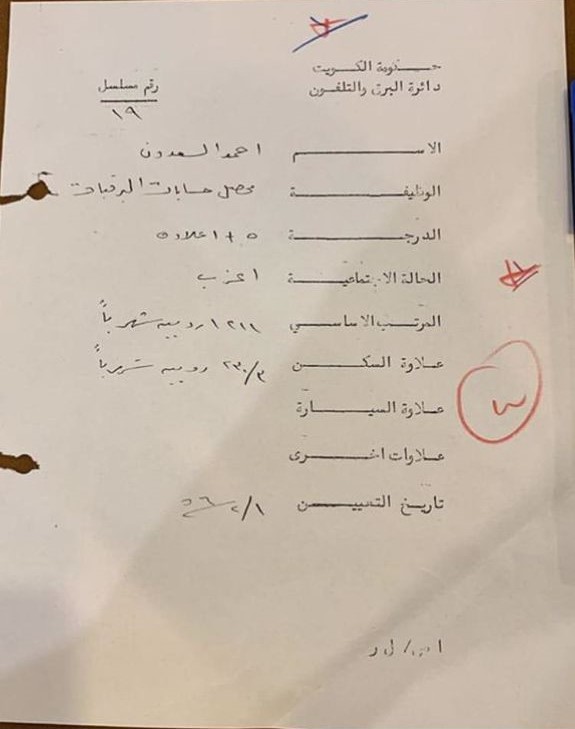 حكومة الكويت
دائرة البرق والتلفون
رقم مسلسل
١٩
الاسم احمد السعدون
الوظيفة محصل حسابات البرقيات
الدرجة ٥ + اعلاوه
الحالة الاجتماعية اعزب
المرتب الاساسي ١٢١١ روبيه شهرياً
علاوة السكن ٢٣٠/٣ روبيه شهرياً
علاوة السيارة
علاوات اخرى
تاريخ التعيين ٥٦/٢/١